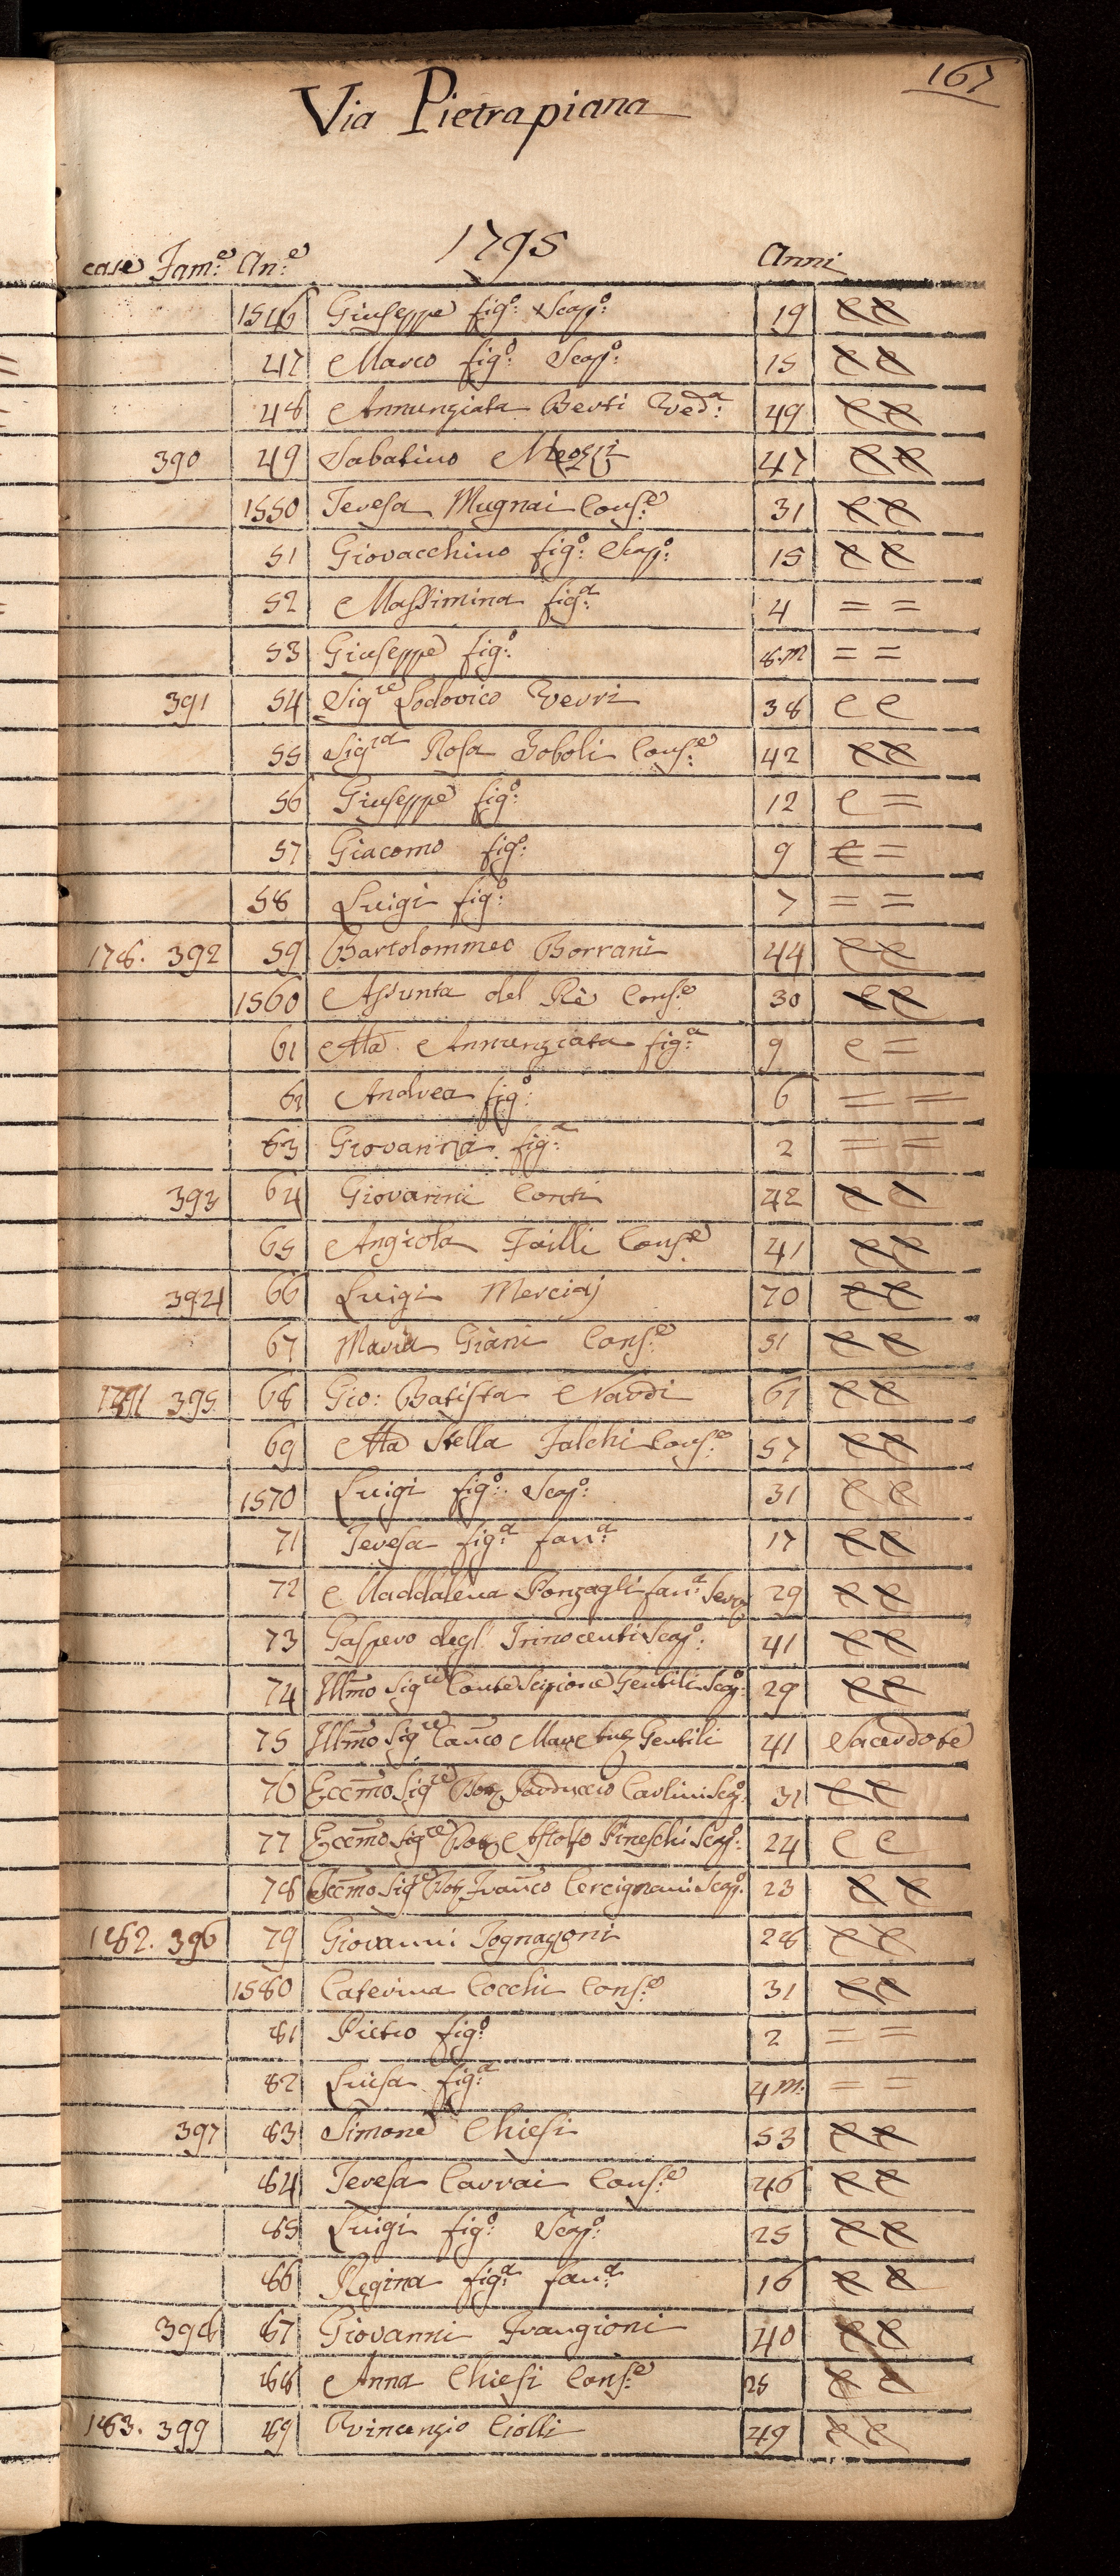 167
Via Pietrapiana
1795
case Fam:e An:e Anni
1546 Giuseppe fig:o Scap:o 19 C C
47 Marco fig:o Scap:o 15 C C
48 Annunziata Berti Ved:a 49 C C
390 49 Sabatino Meozzi 47 C C
1550 Teresa Mugnai Cons:e 31 C C
51 Giovacchino fig:o Scap:o 15 C C
52 Massimina fig:a 4 = =
53 Giuseppe fig:o 8.m = =
391 54 Sig.re Lodovico Verri 38 C C
55 Sig.ra Rosa Boboli Cons:e 42 C C
56 Giuseppe fig:o 12 C =
57 Giacomo fig:o 9 C =
58 Luigi fig:o 7 = =
178. 392 59 Bartolommeo Borrani 44 C C
1560 Assunta del Rè Cons:e 30 C C
61 Ma Annunziata fig:a 9 C =
62 Andrea fig:o 6 = =
63 Giovanna fig:a 2 = =
393 64 Giovanni Conti 42 C C
65 Angiola Failli Cons:e 41 C C
394 66 Luigi Merciaj 70 C C
67 Maria Giani Cons:e 51 C C
395 68 Gio: Batista Nardi 61 C C
69 Ma Stella Falchi Cons:e 57 C C
1570 Luigi fig:o Scap:o 31 C C
71 Teresa fig:a fan:a 17 C C
72 Maddalena Ponzagli fan:a Serva 29 C C
73 Gaspero degl' Innocenti Scap:o 41 C C
74 Illmo Sig.re Conte Scipione Gentili Scap:o 29 C C
75 Illmo Sig.re Canco Marc Ant. Gentili 41 Sacerdote
76 Eccmo Sig.re Carlini Scap:o 31 C C
77 Eccmo Sig.re Astolfo Pineschi Scap:o 24 C C
78 Eccmo Sig.re Franco Cercignani Scap:o 23 C C
182. 396 79 Giovanni Fognagoni 28 C C
1580 Caterina Cocchi Cons:e 31 C C
81 Pietro fig:o 2 = =
82 Luisa fig:a 4 m. = =
397 83 Simone Chiesi 53 C C
84 Teresa Carrai Cons:e 46 C C
85 Luigi fig:o Scap:o 25 C C
86 Regina fig:a fan:a 16 C C
398 87 Giovanni Frangioni 40 C C
88 Anna Chiesi Cons:e 25 C C
183. 399 89 Vincenzio Ciolli 49 C C